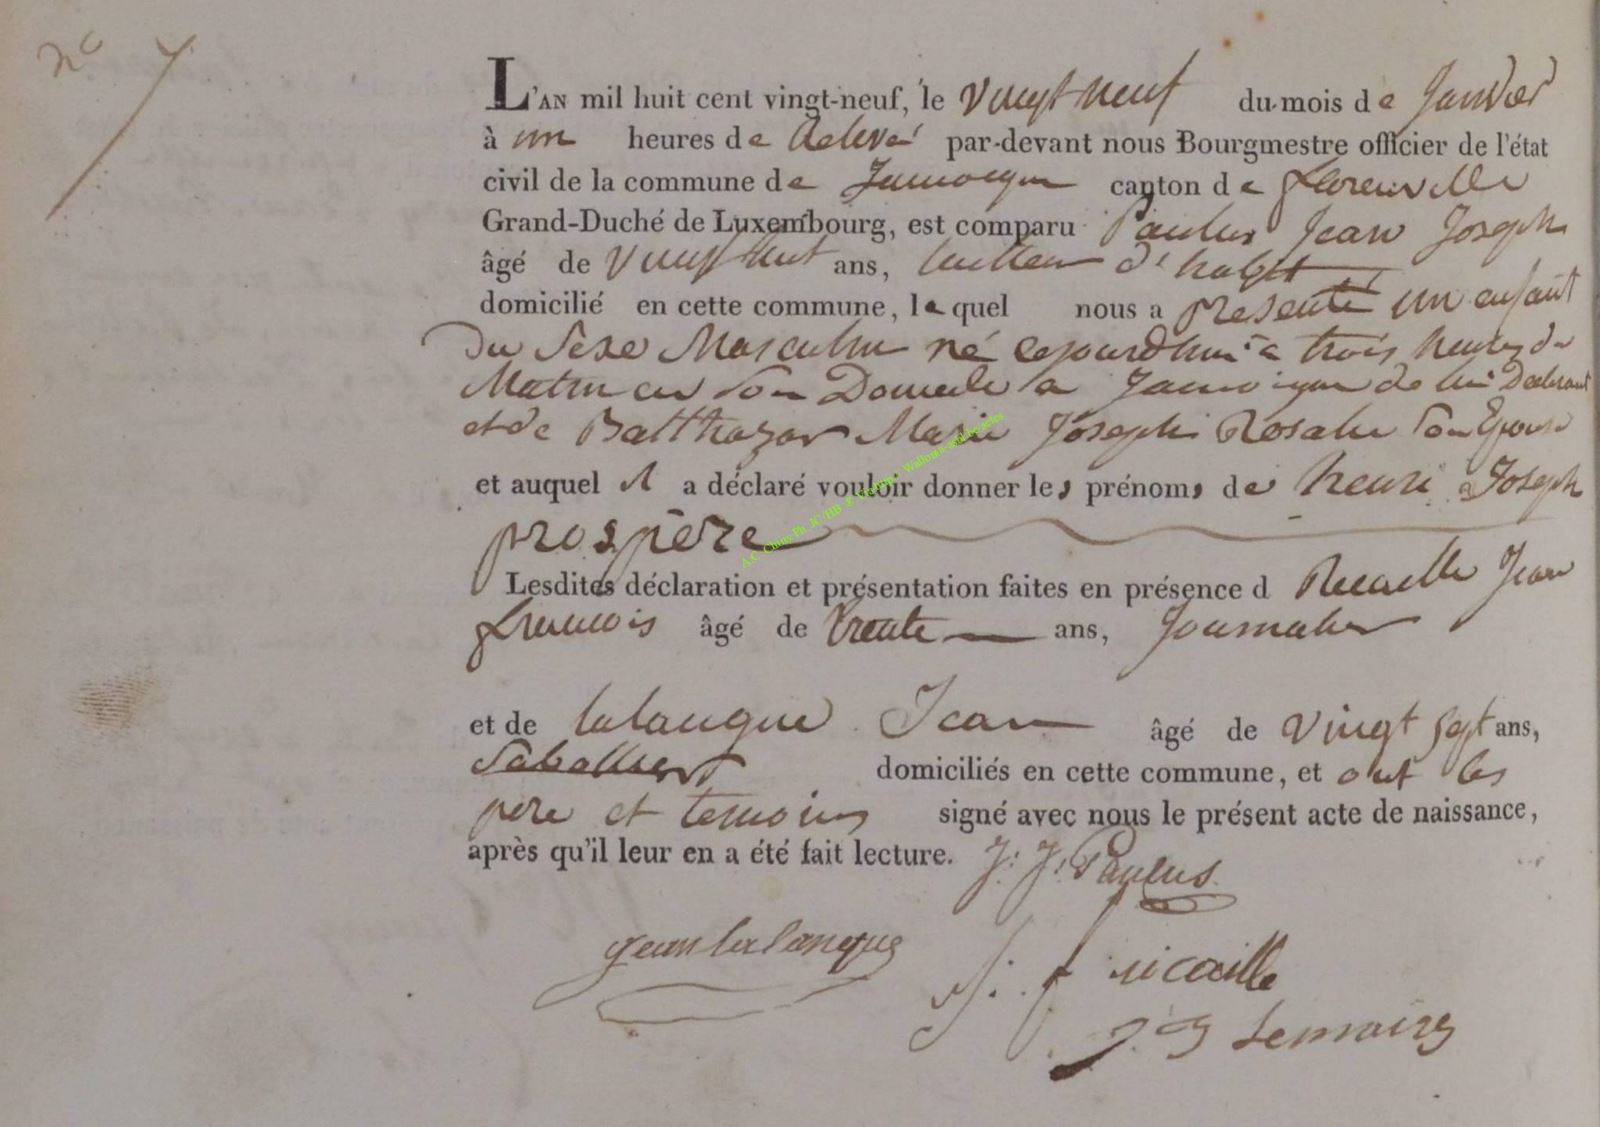 nº 7
L'AN mil huit cent vingt-neuf, le vingt neuf du mois de Janvier
à un heures de relevé par-devant nous Bourgmestre officier de l'état
civil de la commune de Jamoigne canton de florenville
Grand-Duché de Luxembourg, est comparu Paulus Jean Joseph
âgé de vingt huit ans, tailleur d'habit
domicilié en cette commune, lequel nous a présenté un enfant
Du Sexe Masculin né cejourdhui a trois heures du
Matin en son Domicile a Jamoigne de lui Declarant
et de Balthazar Marie Joseph Rosalie son Epouse
et auquel il a déclaré vouloir donner les prénoms de henri Joseph
prospère
Lesdites déclaration et présentation faites en présence d Recaille Jean
francois âgé de trente ans, Journalier
et de lalangue Jean âgé de vingt sept ans,
Sabottier domiciliés en cette commune, et ont les
père et temoins signé avec nous le présent acte de naissance,
après qu'il leur en a été fait lecture. J: J: Paulus
jean lalangue
J: f ricaille
Lemaire